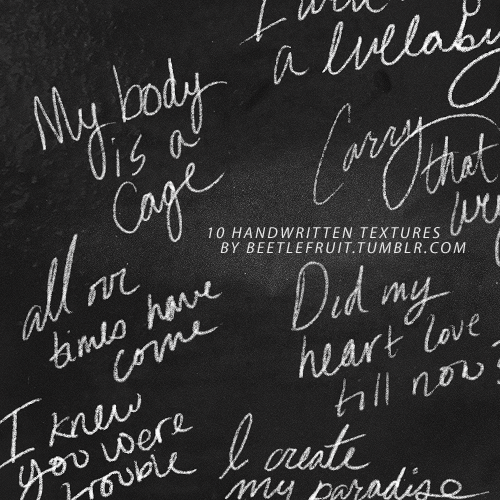 a lullaby
My body
is a
Cage
Carry
that
10 HANDWRITTEN TEXTURES
BY BEETLEFRUIT.TUMBLR.COM
all our
times have
come
Did my
heart love
till now?
I knew
you were
trouble
I create
my paradise